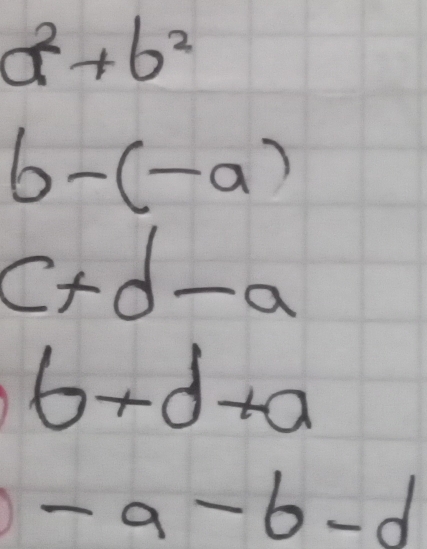 a² + b²
b - (-a)
c + d - a
b + d + a
- a - b - d